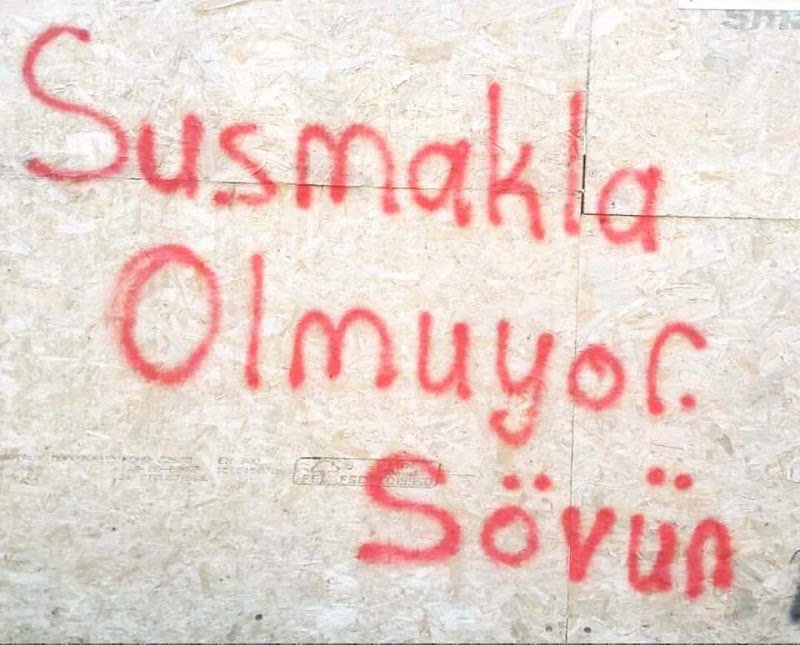 Susmakla
Olmuyor.
Sövün